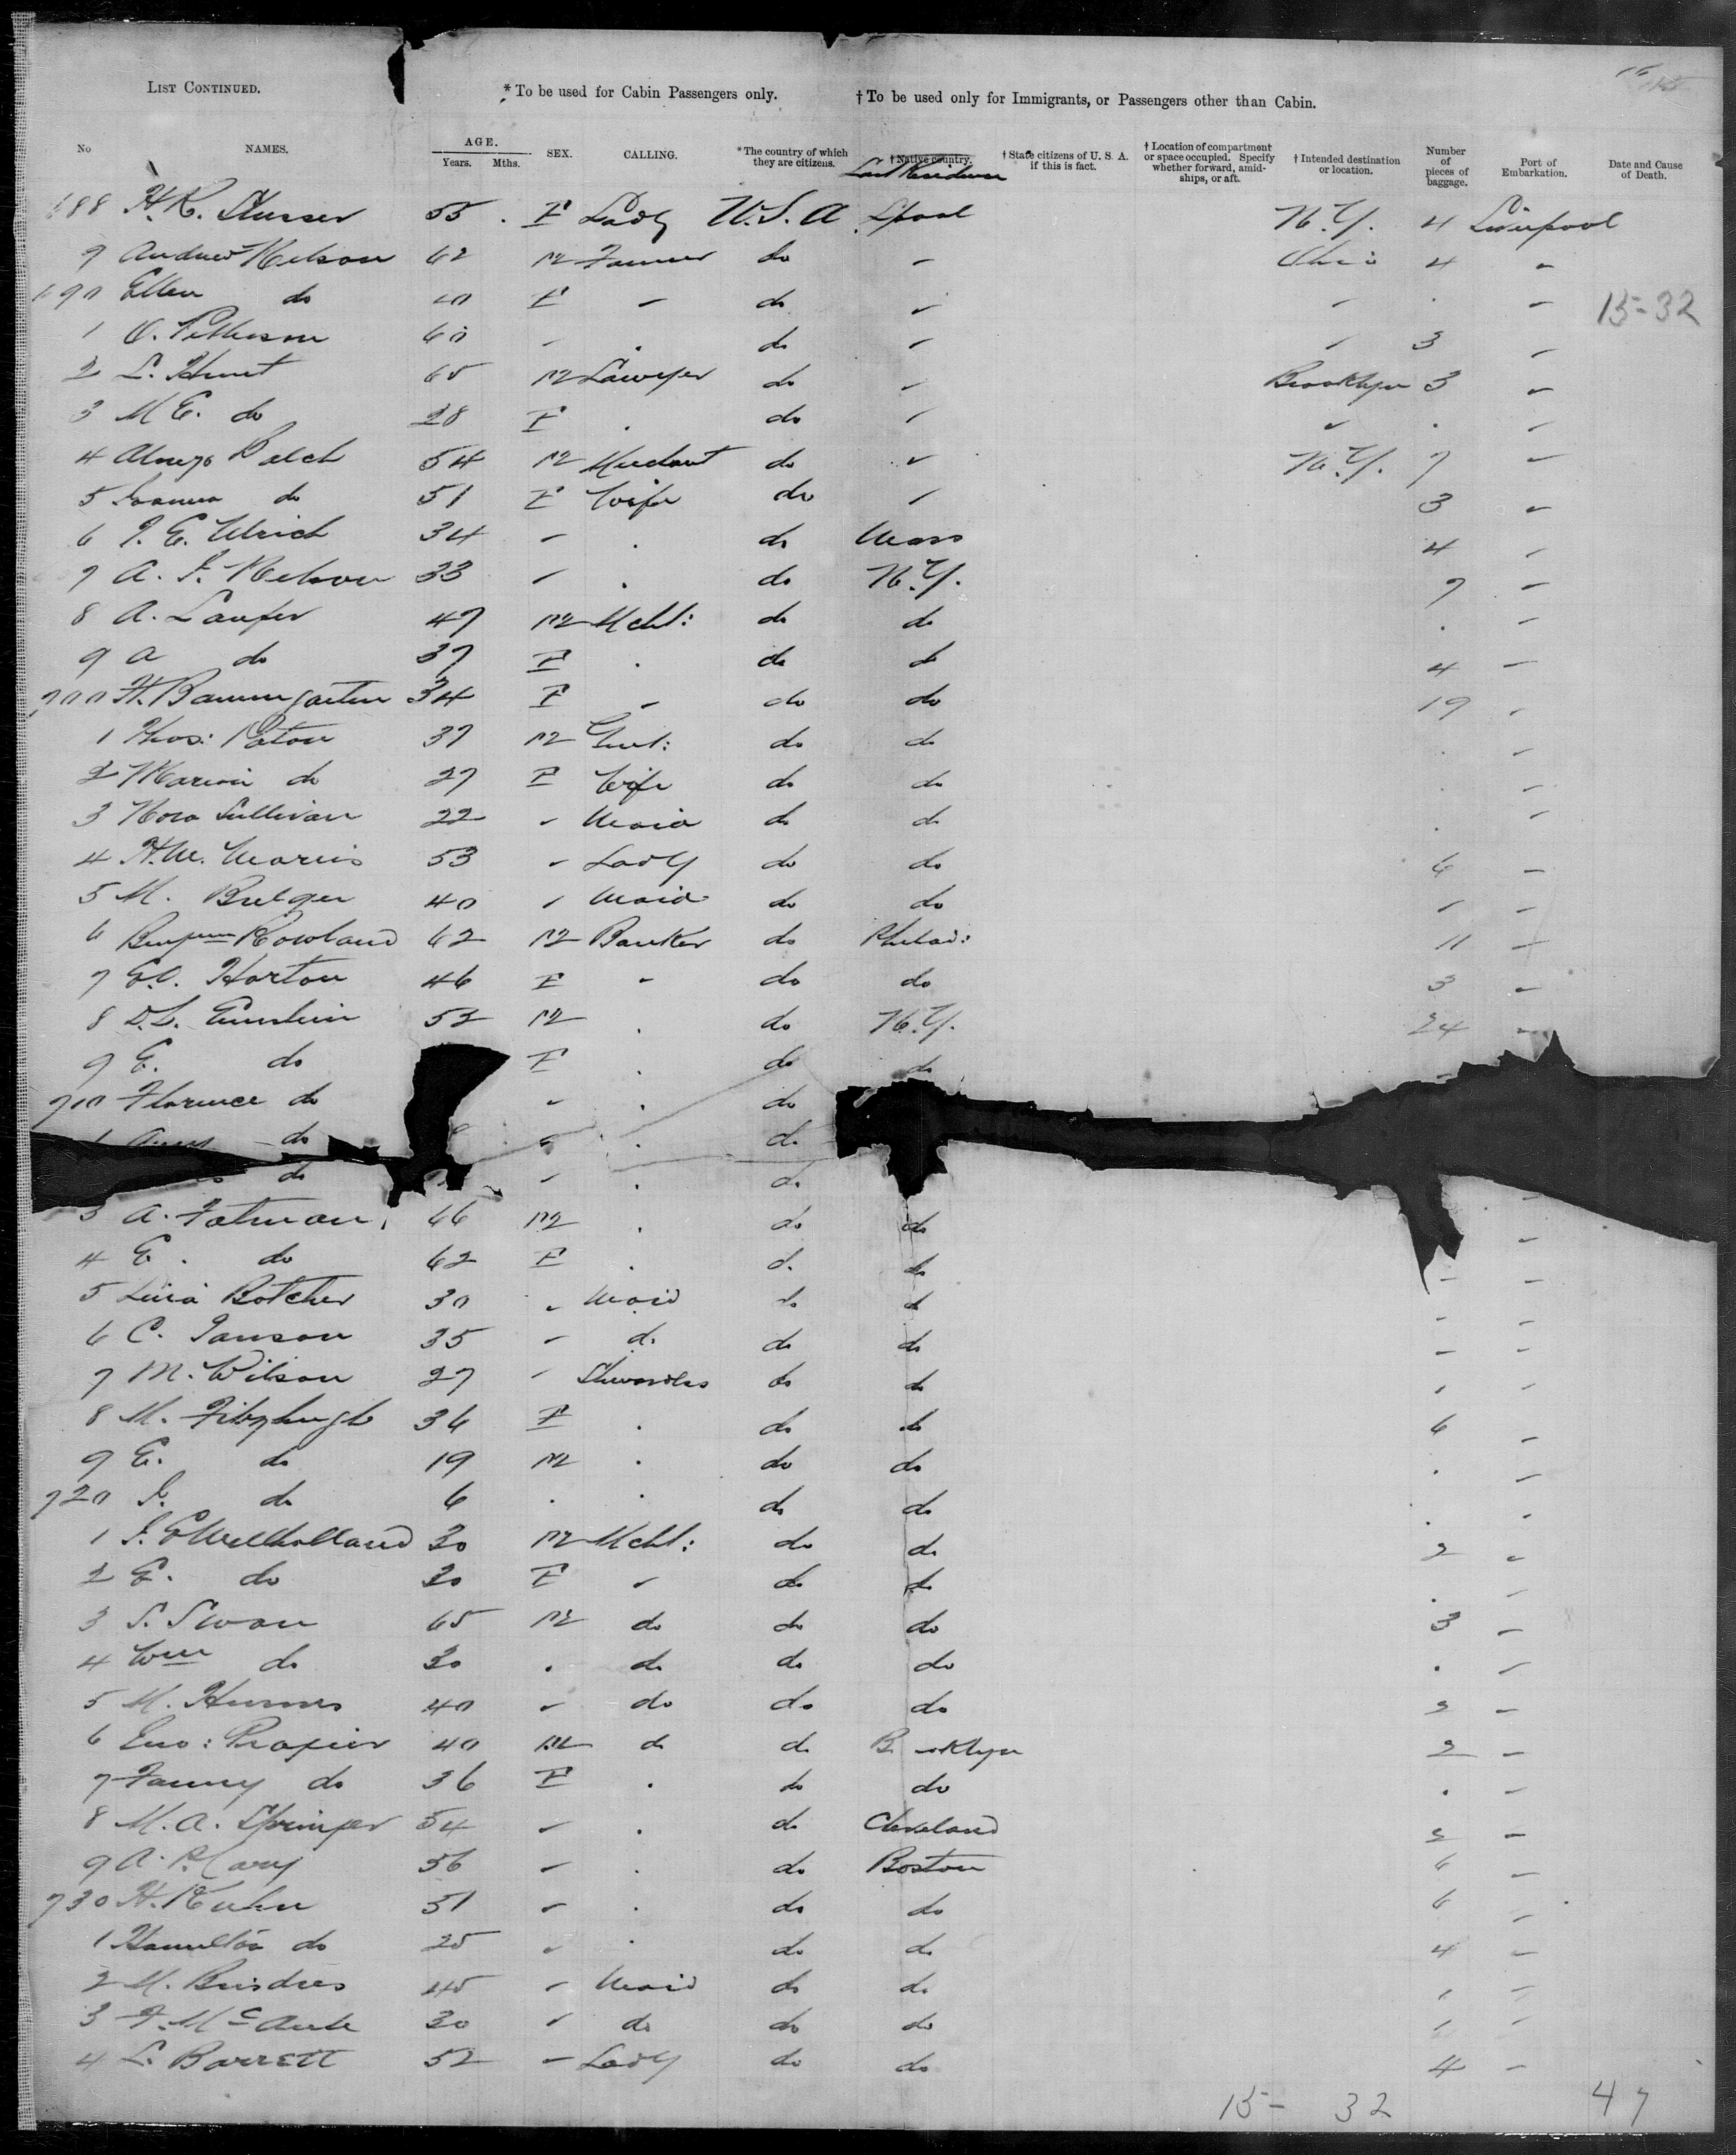 LIST CONTINUED. * To be used for Cabin Passengers only. † To be used only for Immigrants, or Passengers other than Cabin.
No NAMES. AGE. Years. Mths. SEX. CALLING. * The country of which they are citizens. † Native country. Last Residence † State citizens of U. S. A. if this is fact. † Location of compartment or space occupied. Specify whether forward, amidships, or aft. † Intended destination or location. Number of pieces of baggage. Port of Embarkation. Date and Cause of Death.
688 H. K. 55 F Lady U.S.A L'pool N.Y. 4 Liverpool
9 Andrew Nelson 62 M Farmer do " Ohio 4 "
690 Ellen do 40 F " do " " . " 15-32
1 60 " . do " " 3 "
2 L. Hunt 65 M Lawyer do " Brooklyn 3 "
3 M E. do 28 F . do " " . "
4 Balch 54 M Merchant do " N.Y. 7 "
5 Joanna do 51 F Wife do " 3 "
6 Ulrich 34 " . do Mass 4 "
7 A. J. Nelson 33 " . do N.Y. 7 "
8 A. Laufer 47 M Mcht: do do . "
9 A do 37 F . do do 4 "
700 H. Baumgarten 34 F " do do 19 "
1 Thos: Paton 37 M Gent: do do . "
2 Marion do 27 F Wife do do . "
3 Nora Sullivan 22 " Maid do do . "
4 H. M. 53 " Lady do do 6 "
5 M. Bulger 40 " Maid do do " "
6 Rowland 62 M Banker do Philad: 11 "
7 Horton 46 F " do do 3 "
8 D. L. Einstein 53 M . do N.Y. 24 "
9 E. do F . do do
710 Florence do " . do
1 do " . do
do " . do "
3 A. Fatman 66 M . do do "
4 E. do 62 F . do do " "
5 Botcher 30 " Maid do do " "
6 C. Janson 35 " do do do " "
7 M. Wilson 27 " Stewardess do do " "
8 M. Fitzhugh 36 F . do do 6 "
9 E. do 19 M . do do . "
720 J. do 6 . . do do . "
1 J. E Milholland 30 M Mcht: do do 2 "
2 E. do 30 F " do do . "
3 S. Swan 65 M do do do 3 "
4 Wm do 30 . do do do . "
5 M. 40 " do do do 2 "
6 40 M do do Brooklyn 2 "
7 Fanny do 36 F . do do . "
8 M. A. Springer 54 " . do Cleveland 2 "
9 A. P. Cary 56 " . do Boston 6 "
730 H. Kuhn 51 " . do do 6 "
1 Hamilton do 25 " . do do 4 "
2 M. 45 " Maid do do " "
3 30 " do do do " "
4 L. Barrett 52 " Lady do do 4 "
15- 32 47